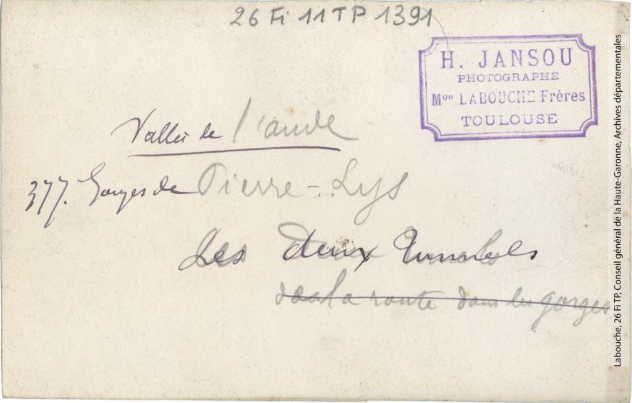 26 Fi 11 TP 1391
H. JANSOU
PHOTOGRAPHE
Mon LABOUCHE Frères
TOULOUSE
Vallée de l'aude
377. Gorges de Pierre-Lys
Les deux tunnels
de la route dans les gorges
Labouche, 26 Fi TP, Conseil général de la Haute-Garonne, Archives départementales